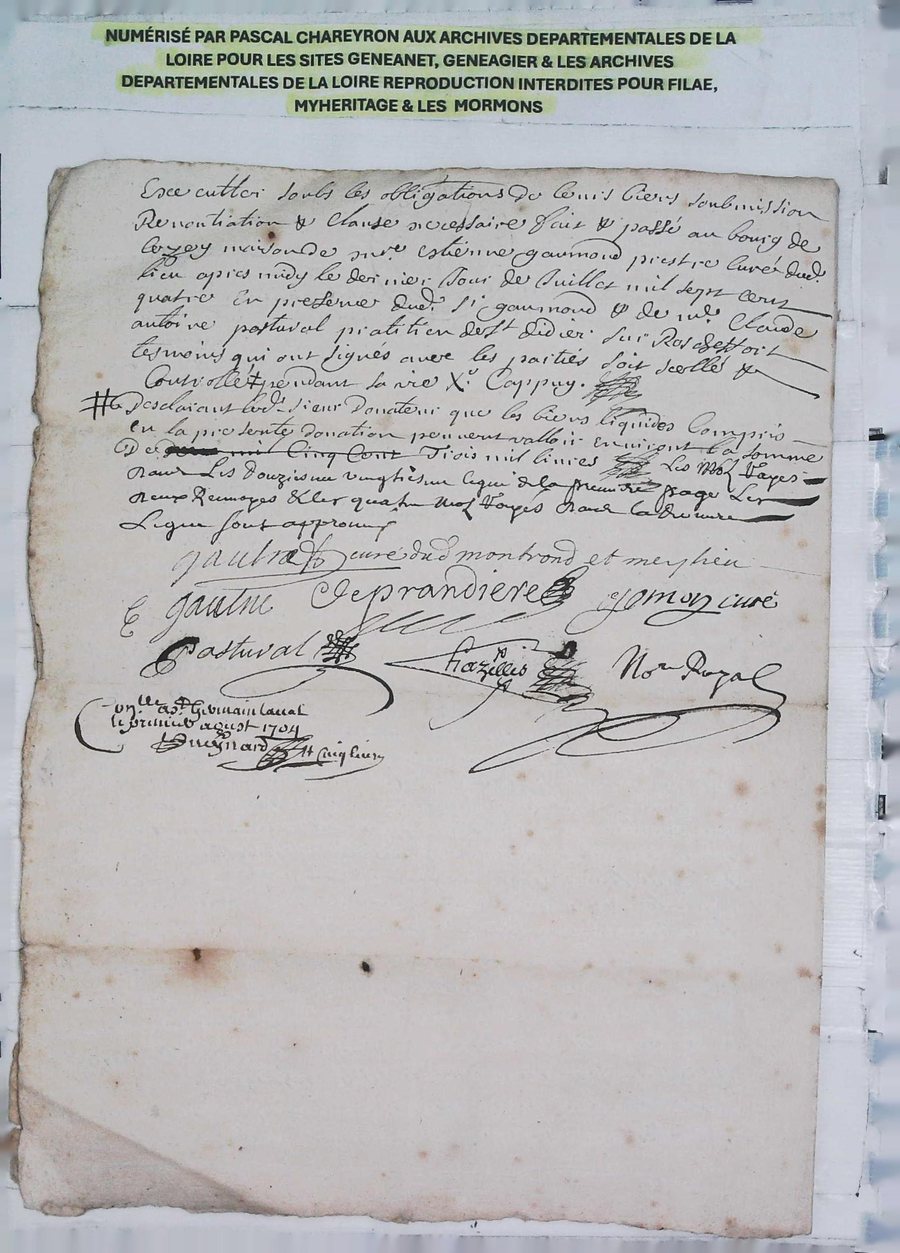 NUMÉRISÉ PAR PASCAL CHAREYRON AUX ARCHIVES DEPARTEMENTALES DE LA
LOIRE POUR LES SITES GENEANET, GENEAGIER & LES ARCHIVES
DEPARTEMENTALES DE LA LOIRE REPRODUCTION INTERDITES POUR FILAE,
MYHERITAGE & LES MORMONS
Executter soubs les obligations de leurs biens soubmission
Renontiation & clause necessaire fait & passé au bourg de
maison de mre estienne gaumond prestre curé dud.
lieu apres midy le dernier Jour de Juillet mil sept cent
quatre En presence dud. sr gaumond & de me Claude
antoine pastural pratitien de st didier sur Rochefort
tesmoins qui ont signés avec les parties soit scellé &
Controllé ‡ pendant sa vie
# desclairant led. sieur Donateur que les biens liquides Compris
en la presente donation peuvent valloir environt la somme
De mil Cinq Cent trois mil livres Les Mot Rayés
dans Les douziesme vingtiesme ligne de la premiere page Les
deux Renvoyes & les quatre Mot Rayés dans la derniere
Ligne sont approuvés
curé dud montrond et meylieu
Deprandiere curé
Pastural Chazelles Nore Royal
Conllé a St Germain laval
le premier aoust 1704
Cinq livres